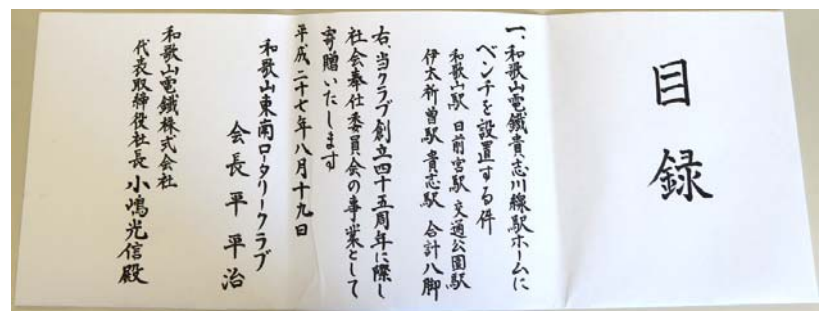 目録
一、和歌山電鐵貴志川線駅ホームに
ベンチを設置する件
和歌山駅 日前宮駅 交通公園駅
伊太祈曽駅 貴志駅 合計八脚
右、当クラブ創立四十五周年に際し
社会奉仕委員会の事業として
寄贈いたします
平成二十七年八月十九日
和歌山東南ロータリークラブ
会長 平 平治
和歌山電鐵株式会社
代表取締役社長 小嶋光信殿